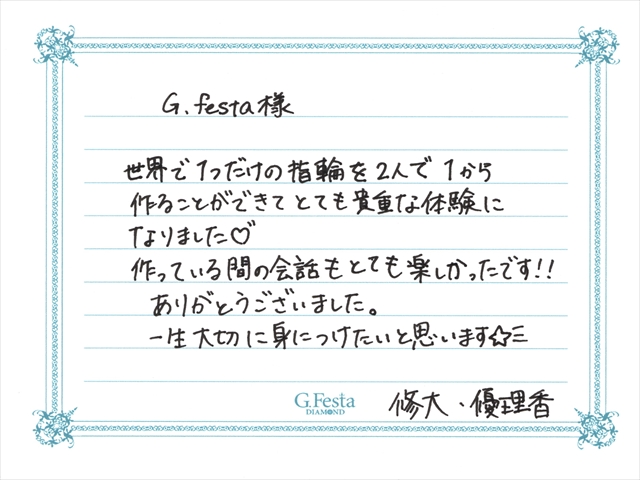 G.festa様
世界で1つだけの指輪を2人で1から
作ることができてとても貴重な体験に
なりました♡
作っている間の会話もとても楽しかったです!!
ありがとうございました。
一生大切に身につけたいと思います☆彡
G.Festa
DIAMOND
修大、優理香